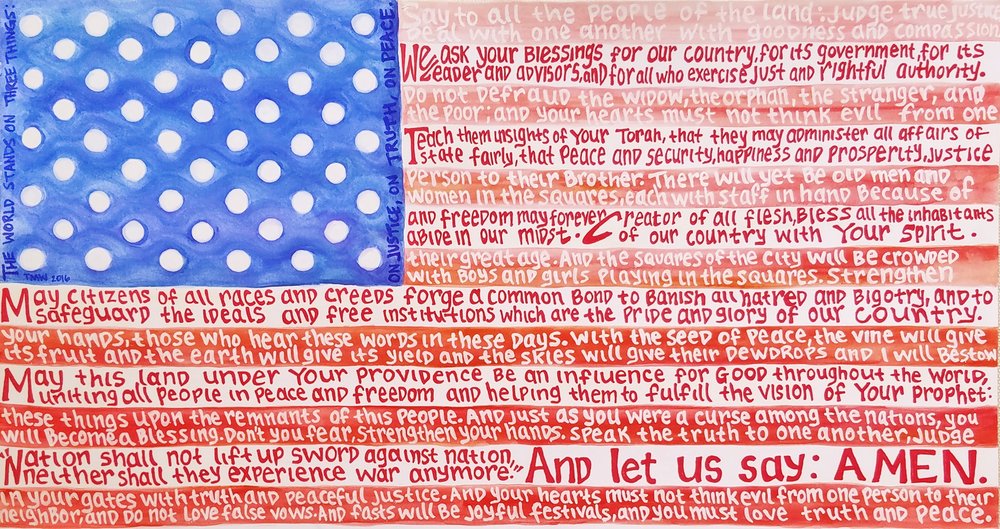 THE WORLD STANDS ON THREE THINGS:
ON JUSTICE, ON TRUTH, ON PEACE.
TMW 2016
Say to all the people of the land. Judge true justice
Deal with one another with goodness and compassion
We ask your Blessings for our country, for its government, for its
Leader and advisors, and for all who exercise just and rightful authority.
Do not defraud the widow, the orphan, the stranger, and
the poor; and your hearts must not think evil from one
Teach them insights of Your Torah, that they may administer all affairs of
state fairly, that peace and security, happiness and prosperity, justice
person to their Brother. There will yet be old men and
women in the squares, each with staff in hand because of
and freedom may forever
abide in our midst.
Creator of all flesh, Bless all the inhabitants
of our country with Your Spirit.
their great age. And the squares of the city will be crowded
with boys and girls playing in the squares. Strengthen
May citizens of all races and creeds forge a common bond to banish all hatred and bigotry, and to
safeguard the ideals and free institutions which are the pride and glory of our country.
your hands, those who hear these words in these days. With the seed of peace, the vine will give
its fruit and the earth will give its yield and the skies will give their dewdrops and I will bestow
May this land under Your Providence be an influence for good throughout the world,
uniting all people in peace and freedom and helping them to fulfill the vision of Your prophet:
these things upon the remnants of this people. And just as you were a curse among the nations, you
will become a blessing. Don't you fear, strengthen your hands. Speak the truth to one another, judge
"Nation shall not lift up sword against nation,
neither shall they experience war anymore."
And let us say: AMEN.
in your gates with truth and peaceful justice. And your hearts must not think evil from one person to their
neighbor, and do not love false vows. And fasts will be joyful festivals, and you must love truth and peace.